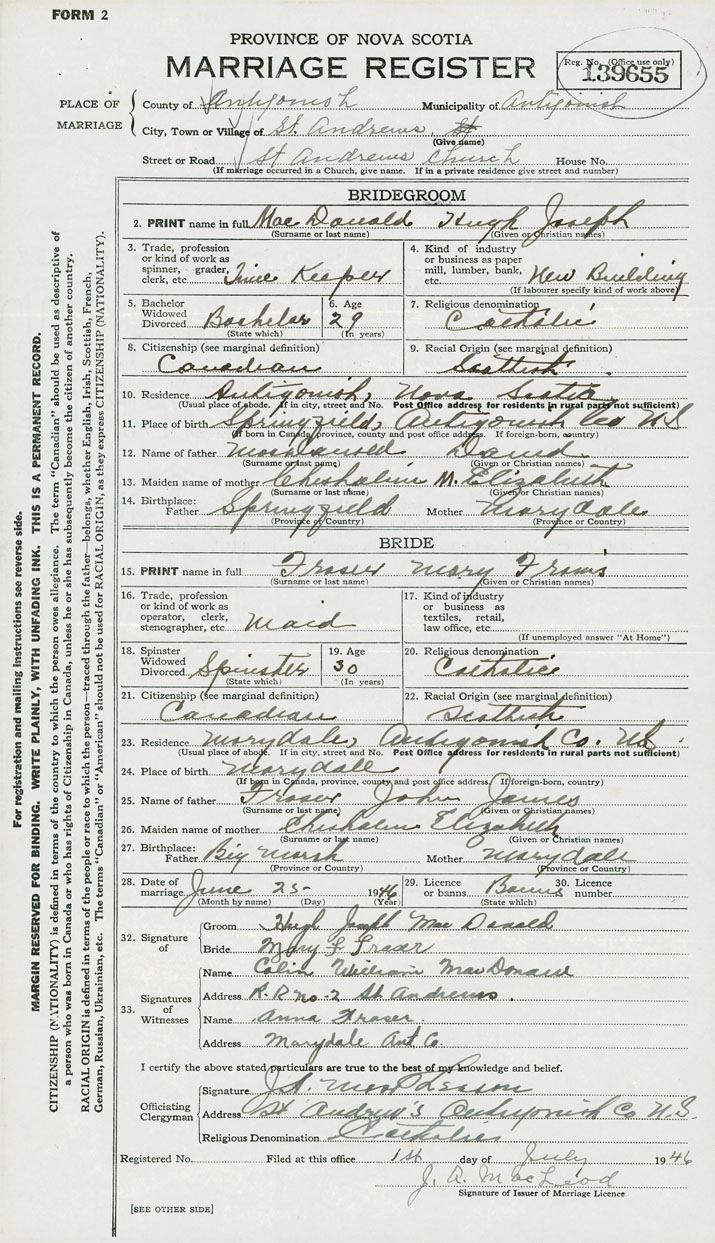 FORM 2
PROVINCE OF NOVA SCOTIA
MARRIAGE REGISTER
Reg. No. (Office use only)
139655
PLACE OF MARRIAGE
County of Antigonish Municipality of Antigonish
City, Town or Village of St. Andrews, St
(Give name)
Street or Road St Andrews Church House No.
(If marriage occurred in a Church, give name. If in a private residence give street and number)
BRIDEGROOM
2. PRINT name in full Mac Donald Hugh Joseph
(Surname or last name) (Given or Christian names)
3. Trade, profession or kind of work as spinner, grader, clerk, etc. Time Keeper
4. Kind of industry or business as paper mill, lumber, bank, etc. New Building
(If labourer specify kind of work above)
5. Bachelor Widowed Divorced Bachelor
(State which)
6. Age 29
(In years)
7. Religious denomination
Catholic
8. Citizenship (see marginal definition)
Canadian
9. Racial Origin (see marginal definition)
Scottish
10. Residence Antigonish, Nova Scotia
(Usual place of abode. If in city, street and No. Post Office address for residents in rural parts not sufficient)
11. Place of birth Springfield, Antigonish Co N.S
(If born in Canada, province, county and post office address. If foreign-born, country)
12. Name of father MacDonald David
(Surname or last name) (Given or Christian names)
13. Maiden name of mother Chisholm M. Elizabeth
(Surname or last name) (Given or Christian names)
14. Birthplace:
Father Springfield Mother Marydale
(Province or Country) (Province or Country)
BRIDE
15. PRINT name in full Fraser Mary
(Surname or last name) (Given or Christian names)
16. Trade, profession or kind of work as operator, clerk, stenographer, etc. Maid
17. Kind of industry or business as textiles, retail, law office, etc.
(If unemployed answer "At Home")
18. Spinster Widowed Divorced Spinster
(State which)
19. Age 30
(In years)
20. Religious denomination
Catholic
21. Citizenship (see marginal definition)
Canadian
22. Racial Origin (see marginal definition)
Scottish
23. Residence Marydale, Antigonish Co. N.S.
(Usual place of abode. If in city, street and No. Post Office address for residents in rural parts not sufficient)
24. Place of birth Marydale
(If born in Canada, province, county and post office address. If foreign-born, country)
25. Name of father Fraser John James
(Surname or last name) (Given or Christian names)
26. Maiden name of mother Chisholm Elizabeth
(Surname or last name) (Given or Christian names)
27. Birthplace:
Father Big Marsh Mother Marydale
(Province or Country) (Province or Country)
28. Date of marriage June 25 1946
(Month by name) (Day) (Year)
29. Licence or banns Banns
(State which)
30. Licence number
32. Signature of
Groom Hugh Joseph Mac Donald
Bride Mary F Fraser
33. Signatures of Witnesses
Name Colin William MacDonald
Address R.R no-2 St Andrews.
Name Anna Fraser
Address Marydale Ant Co.
I certify the above stated particulars are true to the best of my knowledge and belief.
Officiating Clergyman
Signature
Address St Andrew's Antigonish Co N.S.
Religious Denomination Catholic
Registered No. Filed at this office 1st day of July 1946
J. A. MacLeod
Signature of Issuer of Marriage Licence
[SEE OTHER SIDE]
For registration and mailing instructions see reverse side.
MARGIN RESERVED FOR BINDING. WRITE PLAINLY, WITH UNFADING INK. THIS IS A PERMANENT RECORD.
CITIZENSHIP (NATIONALITY) is defined in terms of the country to which the person owes allegiance. The term "Canadian" should be used as descriptive of
a person who was born in Canada or who has rights of Citizenship in Canada, unless he or she has subsequently become the citizen of another country.
RACIAL ORIGIN is defined in terms of the people or race to which the person—traced through the father—belongs, whether English, Irish, Scottish, French,
German, Russian, Ukrainian, etc. The terms "Canadian" or "American" should not be used for RACIAL ORIGIN, as they express CITIZENSHIP (NATIONALITY).